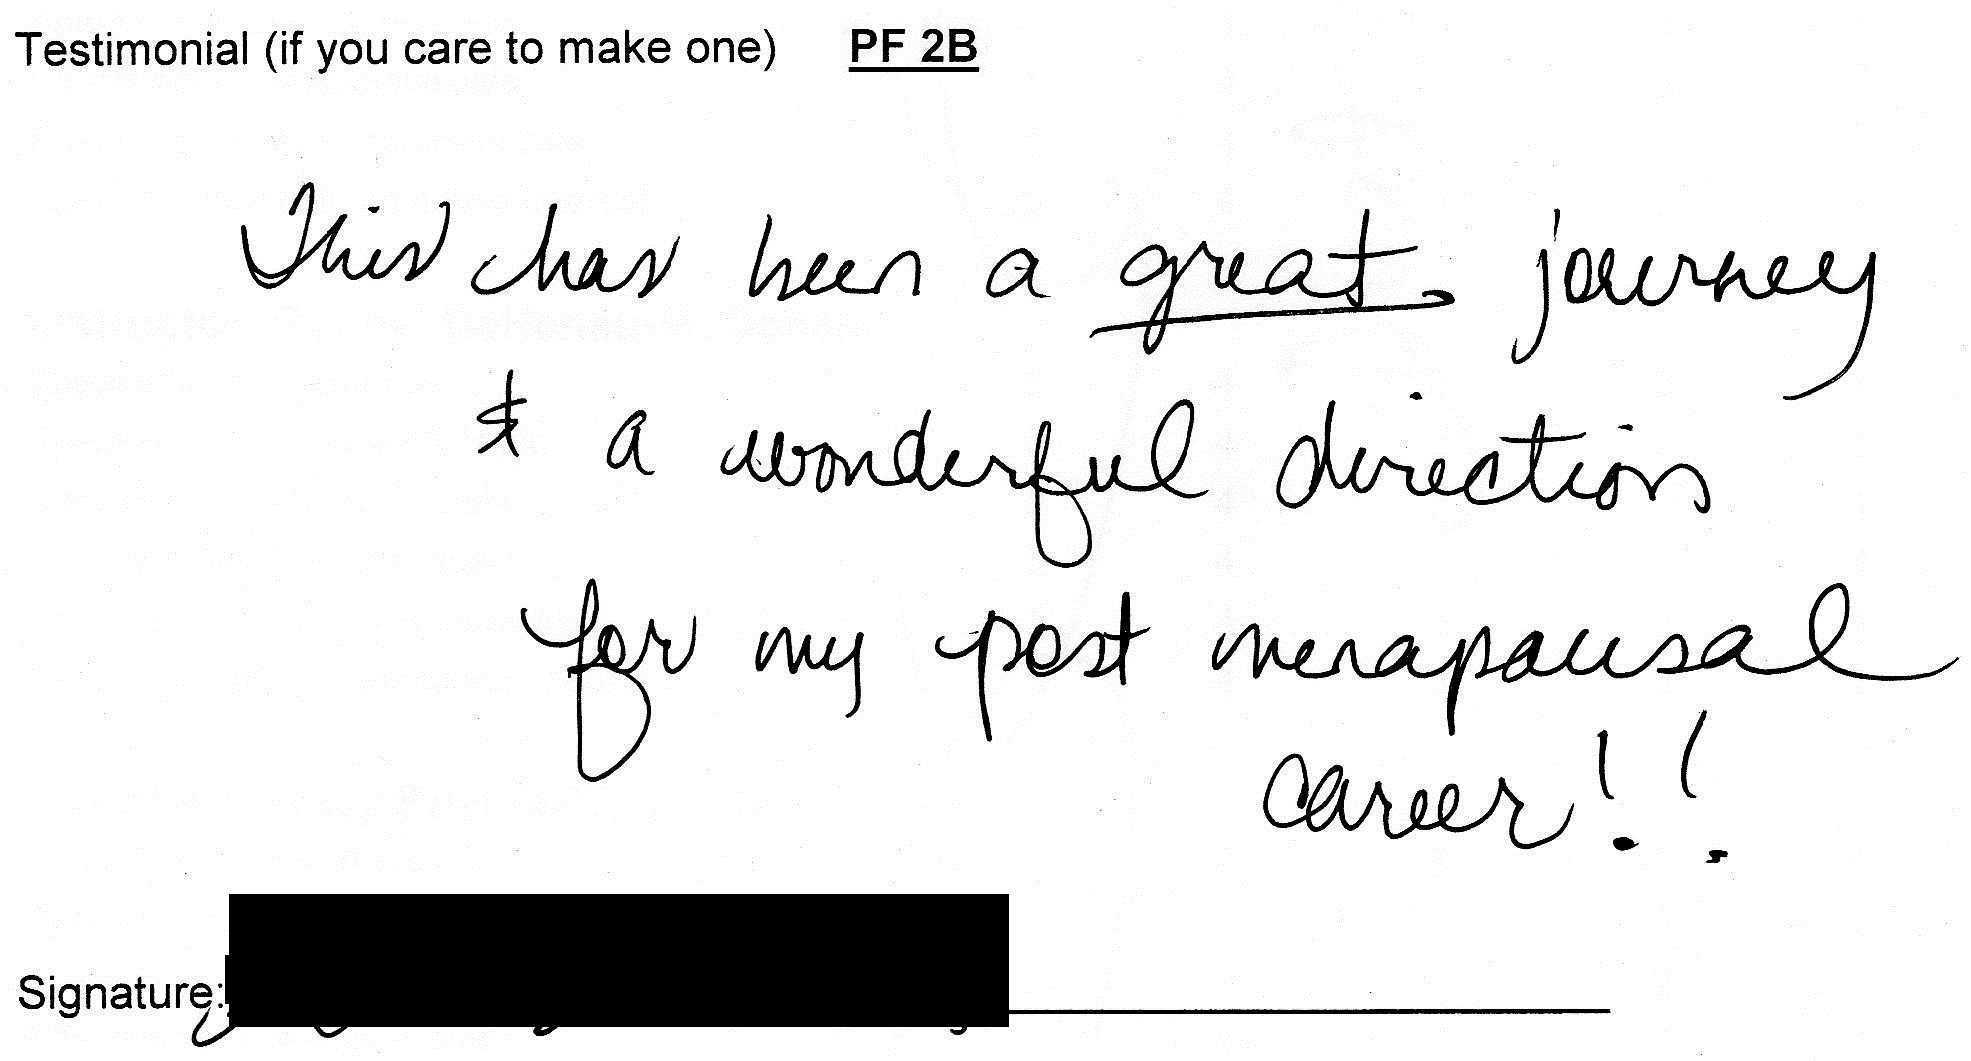 Testimonial (if you care to make one) PF 2B
This has been a great journey
& a wonderful direction
for my post menapausal
career!!
Signature: